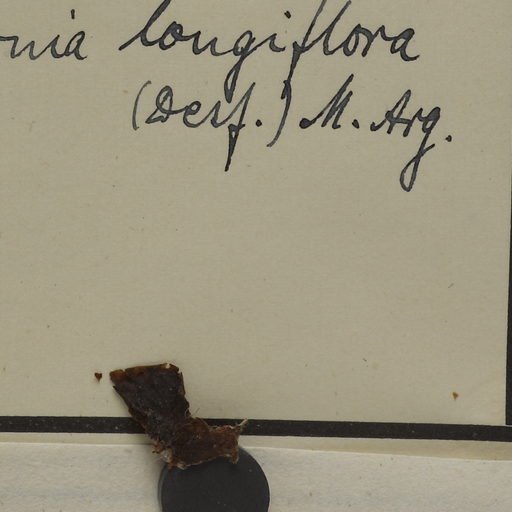 nia longiflora
(Desf.) M. Arg.